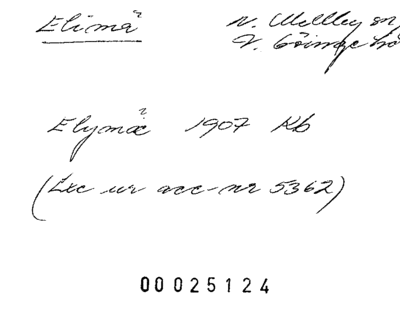 Elimä
N. Mellby sn,
V. Göinge hd
Elymä 1907 Kb
(Exc ur acc-nr 5362)
00025124